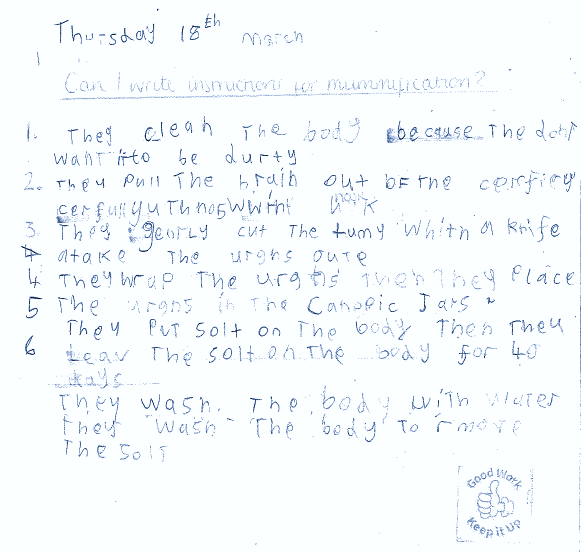 Thursday 18th March
Can I write instructions for mummification?
1. They clean The body because The dont
want it to be durty
2. They pull The brain out of The
3. They geerly cut The tumy whith a knife
4 atake The urgns oute
4 They wrap The urgns Then They place
5 The urgns in The Canopic Jars
They put solt on The body Then They
6 Leav The solt on The body for 40
days
They wash. The body with water
They wash The body To rmove
The solt
Good Work
Keep it Up